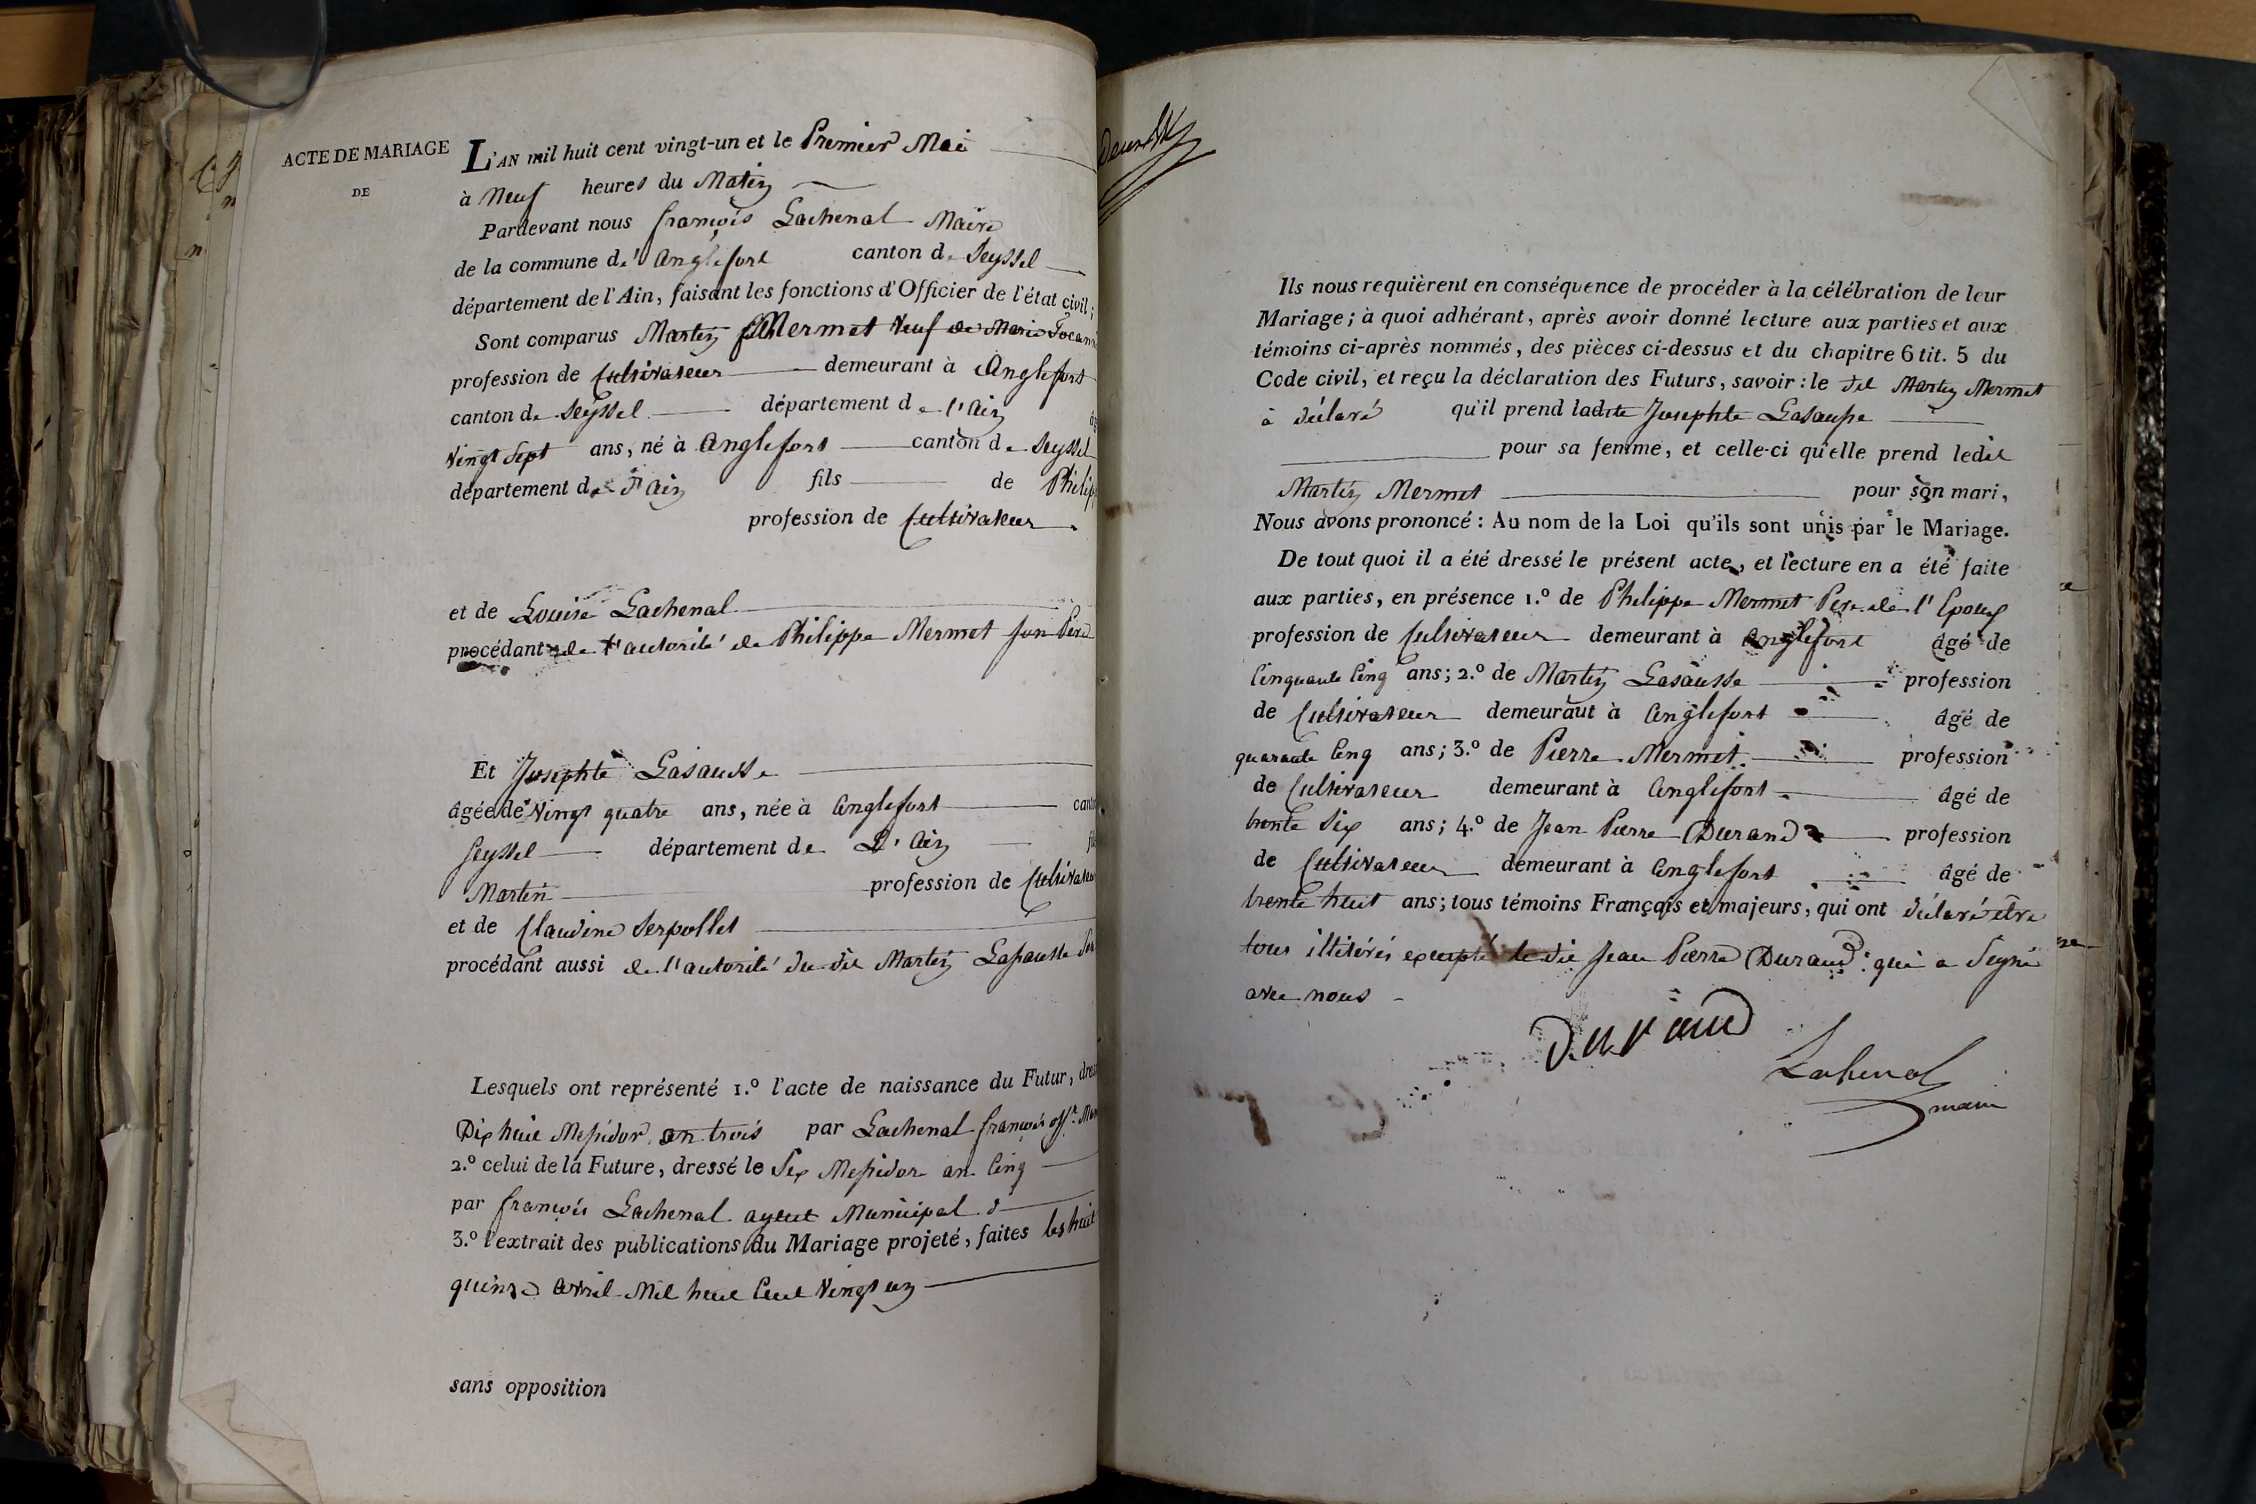 ACTE DE MARIAGE
DE
L'AN mil huit cent vingt-un et le Premier Mai
à Neuf heures du Matin
Pardevant nous françois Lachenal Maire
de la commune d'Anglefort canton de Seyssel
département de l'Ain, faisant les fonctions d'Officier de l'état civil;
Sont comparus Martin Mermet Veuf de Marie
profession de Cultivateur demeurant à Anglefort
canton de Seyssel département de l'Ain
Vingt Sept ans, né à Anglefort canton de Seyssel
département de l'Ain fils de Philip
profession de Cultivateur
et de Louise Lachenal
procédant de l'autorité de Philippe Mermet son Père
Et Josephte Lasausse
âgée de Vingt quatre ans, née à Anglefort cant
Seyssel département de L'Ain
Martin profession de Cultivateur
et de Claudine Serpollet
procédant aussi de l'autorité du dit Martin Lasausse
Lesquels ont représenté 1.º l'acte de naissance du Futur, dres
Dix huit Messidor an trois par Lachenal françois off.r
2.º celui de la Future, dressé le Six Messidor an Cinq
par françois Lachenal agent Municipal
3.º l'extrait des publications du Mariage projeté, faites les huit
quinze avril Mil huit Cent Vingt un
sans opposition
Ils nous requièrent en conséquence de procéder à la célébration de leur
Mariage; à quoi adhérant, après avoir donné lecture aux parties et aux
témoins ci-après nommés, des pièces ci-dessus et du chapitre 6 tit. 5 du
Code civil, et reçu la déclaration des Futurs, savoir: le dit Martin Mermet
à déclaré qu'il prend ladite Josephte Lasausse
pour sa femme, et celle-ci qu'elle prend ledit
Martin Mermet pour son mari,
Nous avons prononcé: Au nom de la Loi qu'ils sont unis par le Mariage.
De tout quoi il a été dressé le présent acte, et lecture en a été faite
aux parties, en présence 1.º de Philippe Mermet Père de l'Epoux
profession de Cultivateur demeurant à Anglefort âgé de
Cinquante Cinq ans; 2.º de Martin Lasausse profession
de Cultivateur demeurant à Anglefort âgé de
quarante Cinq ans; 3.º de Pierre Mermet profession
de Cultivateur demeurant à Anglefort âgé de
trente Six ans; 4.º de Jean Pierre Durand profession
de Cultivateur demeurant à Anglefort âgé de
trente huit ans; tous témoins Français et majeurs, qui ont déclaré être
tous illitérés excepté le dit Jean Pierre Durand qui a Signé
avec nous
durand
Lachenal
maire